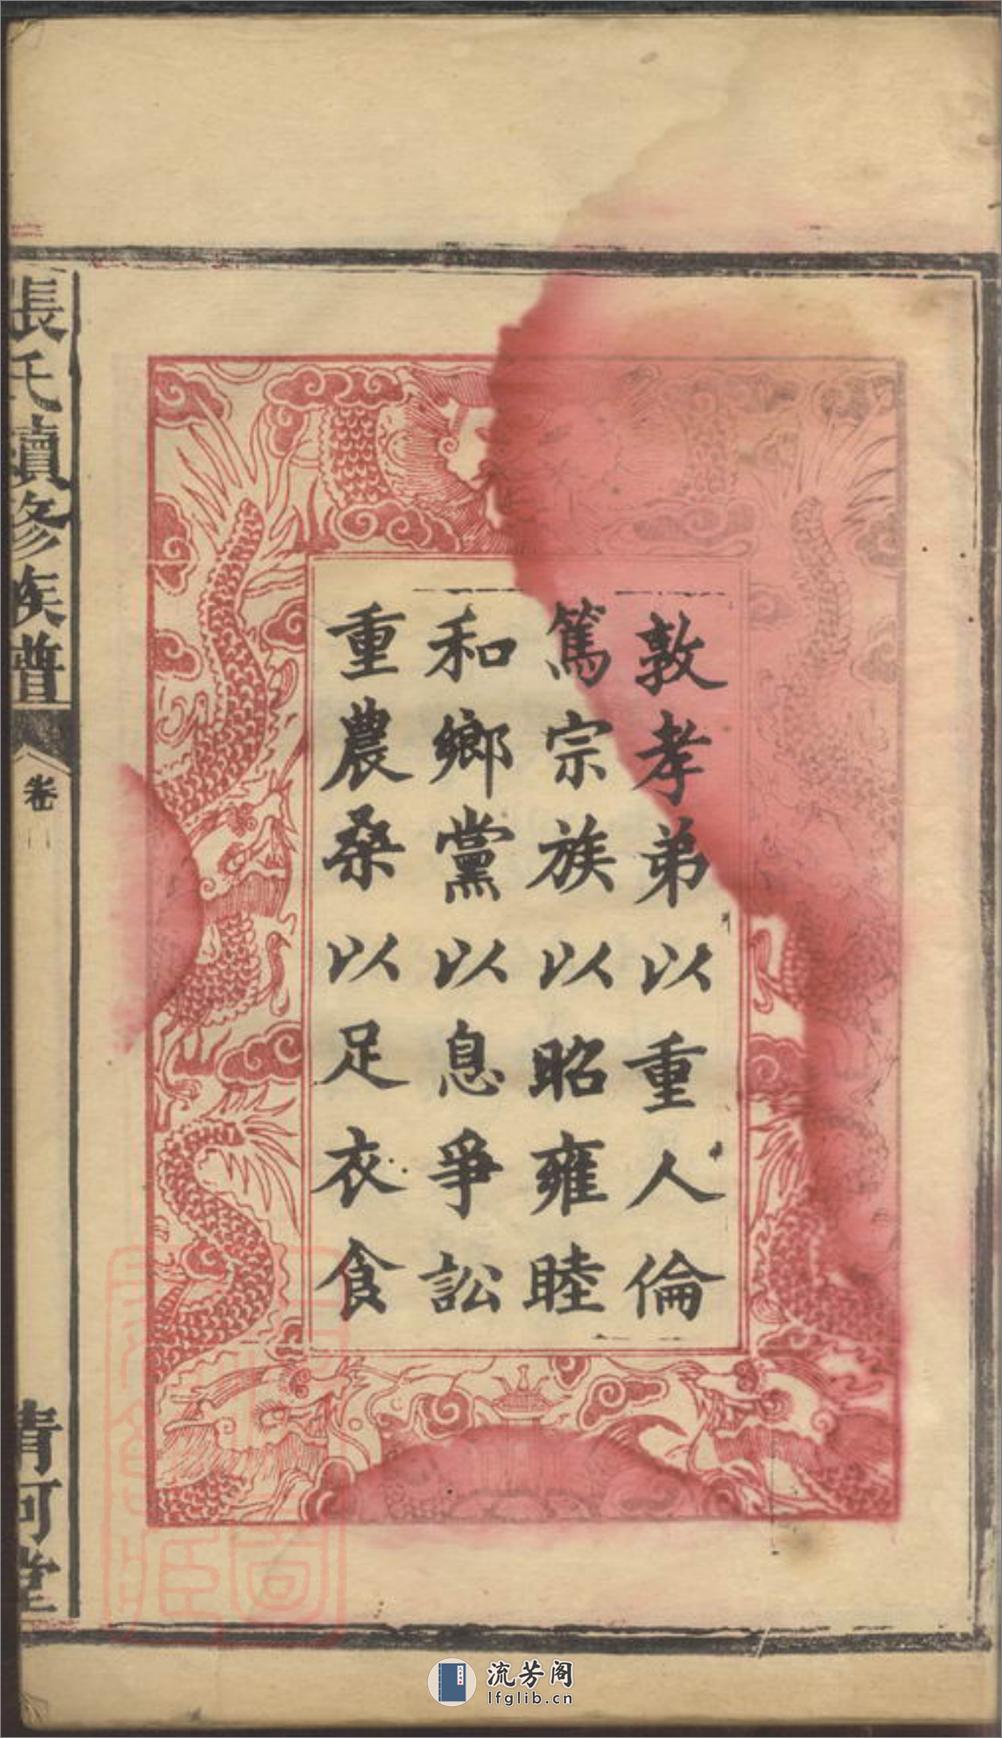 敦孝弟以重人倫
篤宗族以昭雍睦
和鄉黨以息爭訟
重農桑以足衣食
張氏續修族譜
清河堂
流芳阁
lfglib.cn